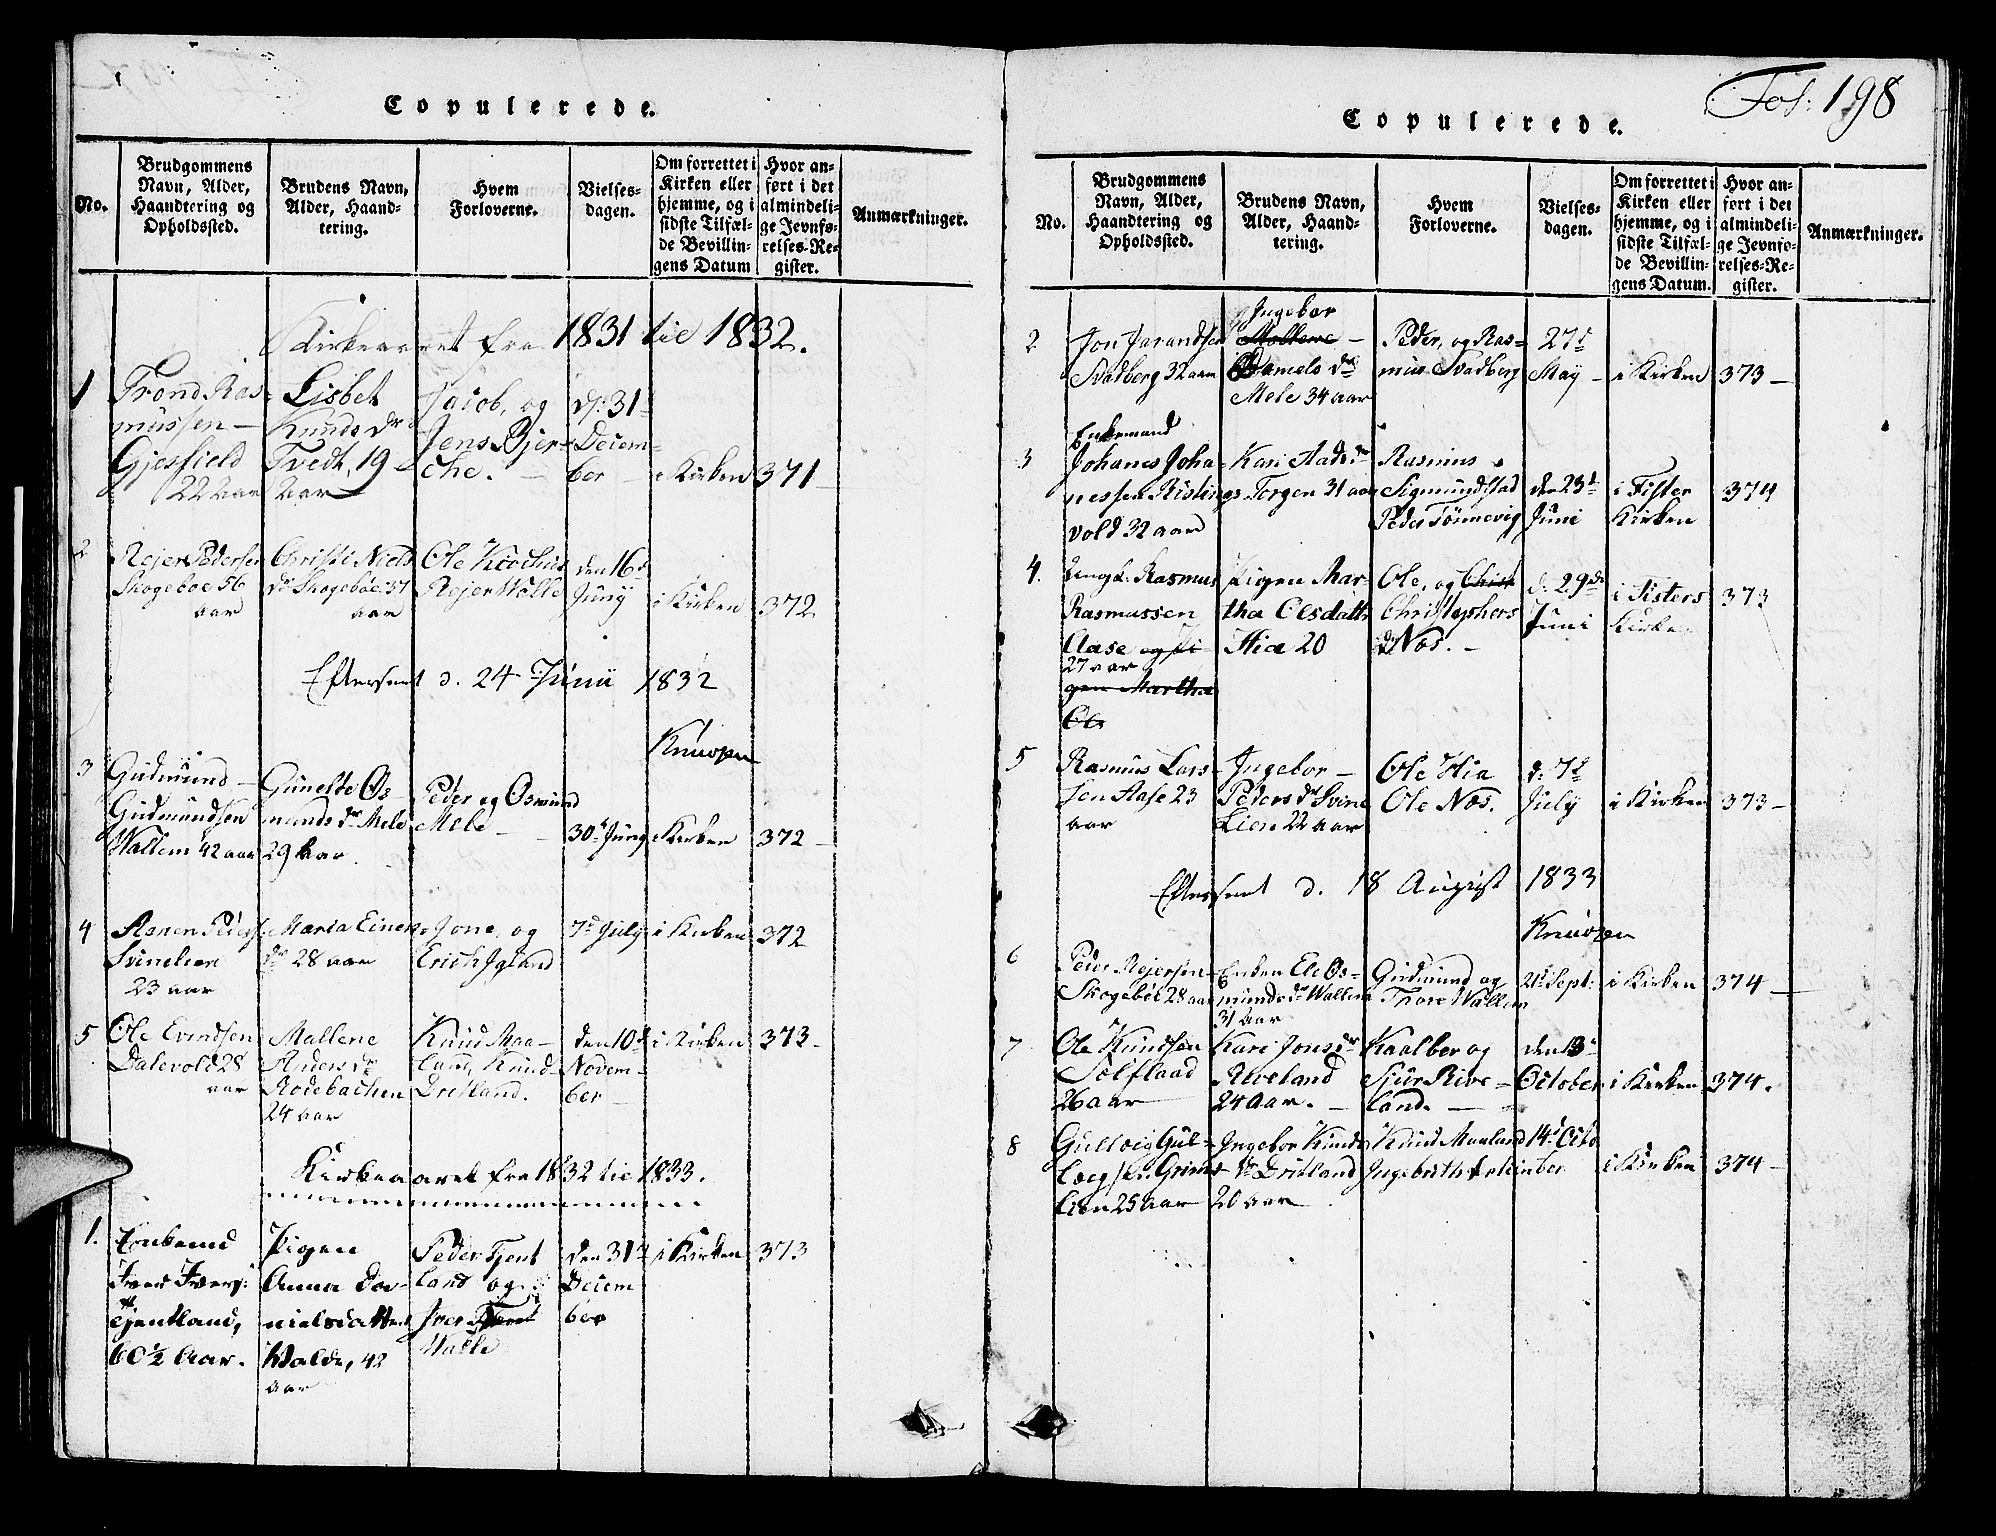 Copulerede.
No.
Brudgommens
Navn, Alder,
Haandtering og
Opholdssted.
Brudens Navn,
Alder, Haand-
tering.
Hvem
Forloverne.
Vielses-
dagen.
Om forrettet i
Kirken eller
hjemme, og i
sidste Tilfæl-
de Bevillin-
gens Datum
Hvor an-
ført i det
almindeli-
ge Jevnfø-
relses-Re-
gister.
Anmærkninger.
Kirkeaaret fra 1831 til 1832.
1
Trond Ras-
mussen
Gjesfield
22 aar
Lisbet
Knuds dr
Tvedt, 19
aar
Jacob, og
Jens Bjer-
che.
d: 31
Decem-
ber
i Kirken
371
2
Rejer Pedersen
Skogeboe 56
aar
Christi Niels
dr Skogeböe 37
aar
Ole
Rejer Walle
den 16d
Juny
i Kirken
372
Efterseet d. 24 Junii 1832
Knudsen
3
Gudmund
Gudmundsen
Wallem 42 aar
Gunelle Os-
munds dr Mele
29 aar
Peder og Osmund
Mele
30t Juny
i Kirken
372
4
Aanen Peders
Svinelien
23 aar
Maria Einer
dr 28 aar
Jone, og
Erich Igland
7d July
i Kirken
372
5
Ole Evindsen
Dalevold 28
aar
Mallene
Anders dr
Rodebachen
24 aar
Knud Maa-
land, Knud
Dritland.
den 10d
Novem-
ber
i Kirken
373
Kirkeaaret fra 1832 til 1833.
1.
Enkemd
Iver Ivers:
Tjentland,
60½ Aar.
Pigen
Anna Da-
nielsdatter
Walde, 42
aar
Peder Tjent
land og
Iver
Walle
den 31d
Decem
ber
i Kirken
373
Fol: 198
Copulerede.
No.
Brudgommens
Navn, Alder,
Haandtering og
Opholdssted.
Brudens Navn,
Alder, Haand-
tering.
Hvem
Forloverne.
Vielses-
dagen.
Om forrettet i
Kirken eller
hjemme, og i
sidste Tilfæl-
de Bevillin-
gens Datum.
Hvor an-
ført i det
almindeli-
ge Jevnfø-
relses-Re-
gister.
Anmærkninger.
2
Jon Jarandsen
Svadberg 32 aar
Ingebor
Mallene
Daniels dr
Mele 34 aar
Peder, og Ras-
mus Svadberg
27d
May
i Kirken
373
3
Enkemand
Johanes Joha-
nessen Ristings
vold 32 aar
Kari Aads dr
Torgen 31 aar
Rasmus
Sigmundstad
Peder Tönnevig
den 23d
Juni
i Fister
Kirken
374
4.
Ungk. Rasmus
Rasmussen
Aase og Pi-
27 aar
gen Martha
Ols
Pigen Mar-
tha Olsdatter
Hia 20
Ole, og Christ
Christophers
Næs.
d. 29de
Juni
i Fisters
Kirke
373
5
Rasmus Lars-
sen Aase 23
aar
Ingebor
Peders dr Svine
Lien 22 aar
Ole Hia
Ole Næs.
d: 7d
July
i Kirken
373
Efterseet d. 18 August 1833
Knudsen
6
Peder Rejersen
Skogeböe 28 aar
Enken Eli Os-
munds dr Wallem
31 aar
Gudmund og
Thore Wallem
21d Sept:
i Kirken
374
7
Ole Knudsen
Solflaad
26 aar
Kari Jons dr
Riveland
24 Aar.
Kaalber og
Sjur Rive-
land.
den 13d
October
i Kirken
374.
8
Gulleig Gul-
leigsen Grims-
lien 25 aar
Ingebor Knuds
dr Dritland
20 aar
Knud Maaland
Ingebrith
14d Octo
ber
i Kirken
374